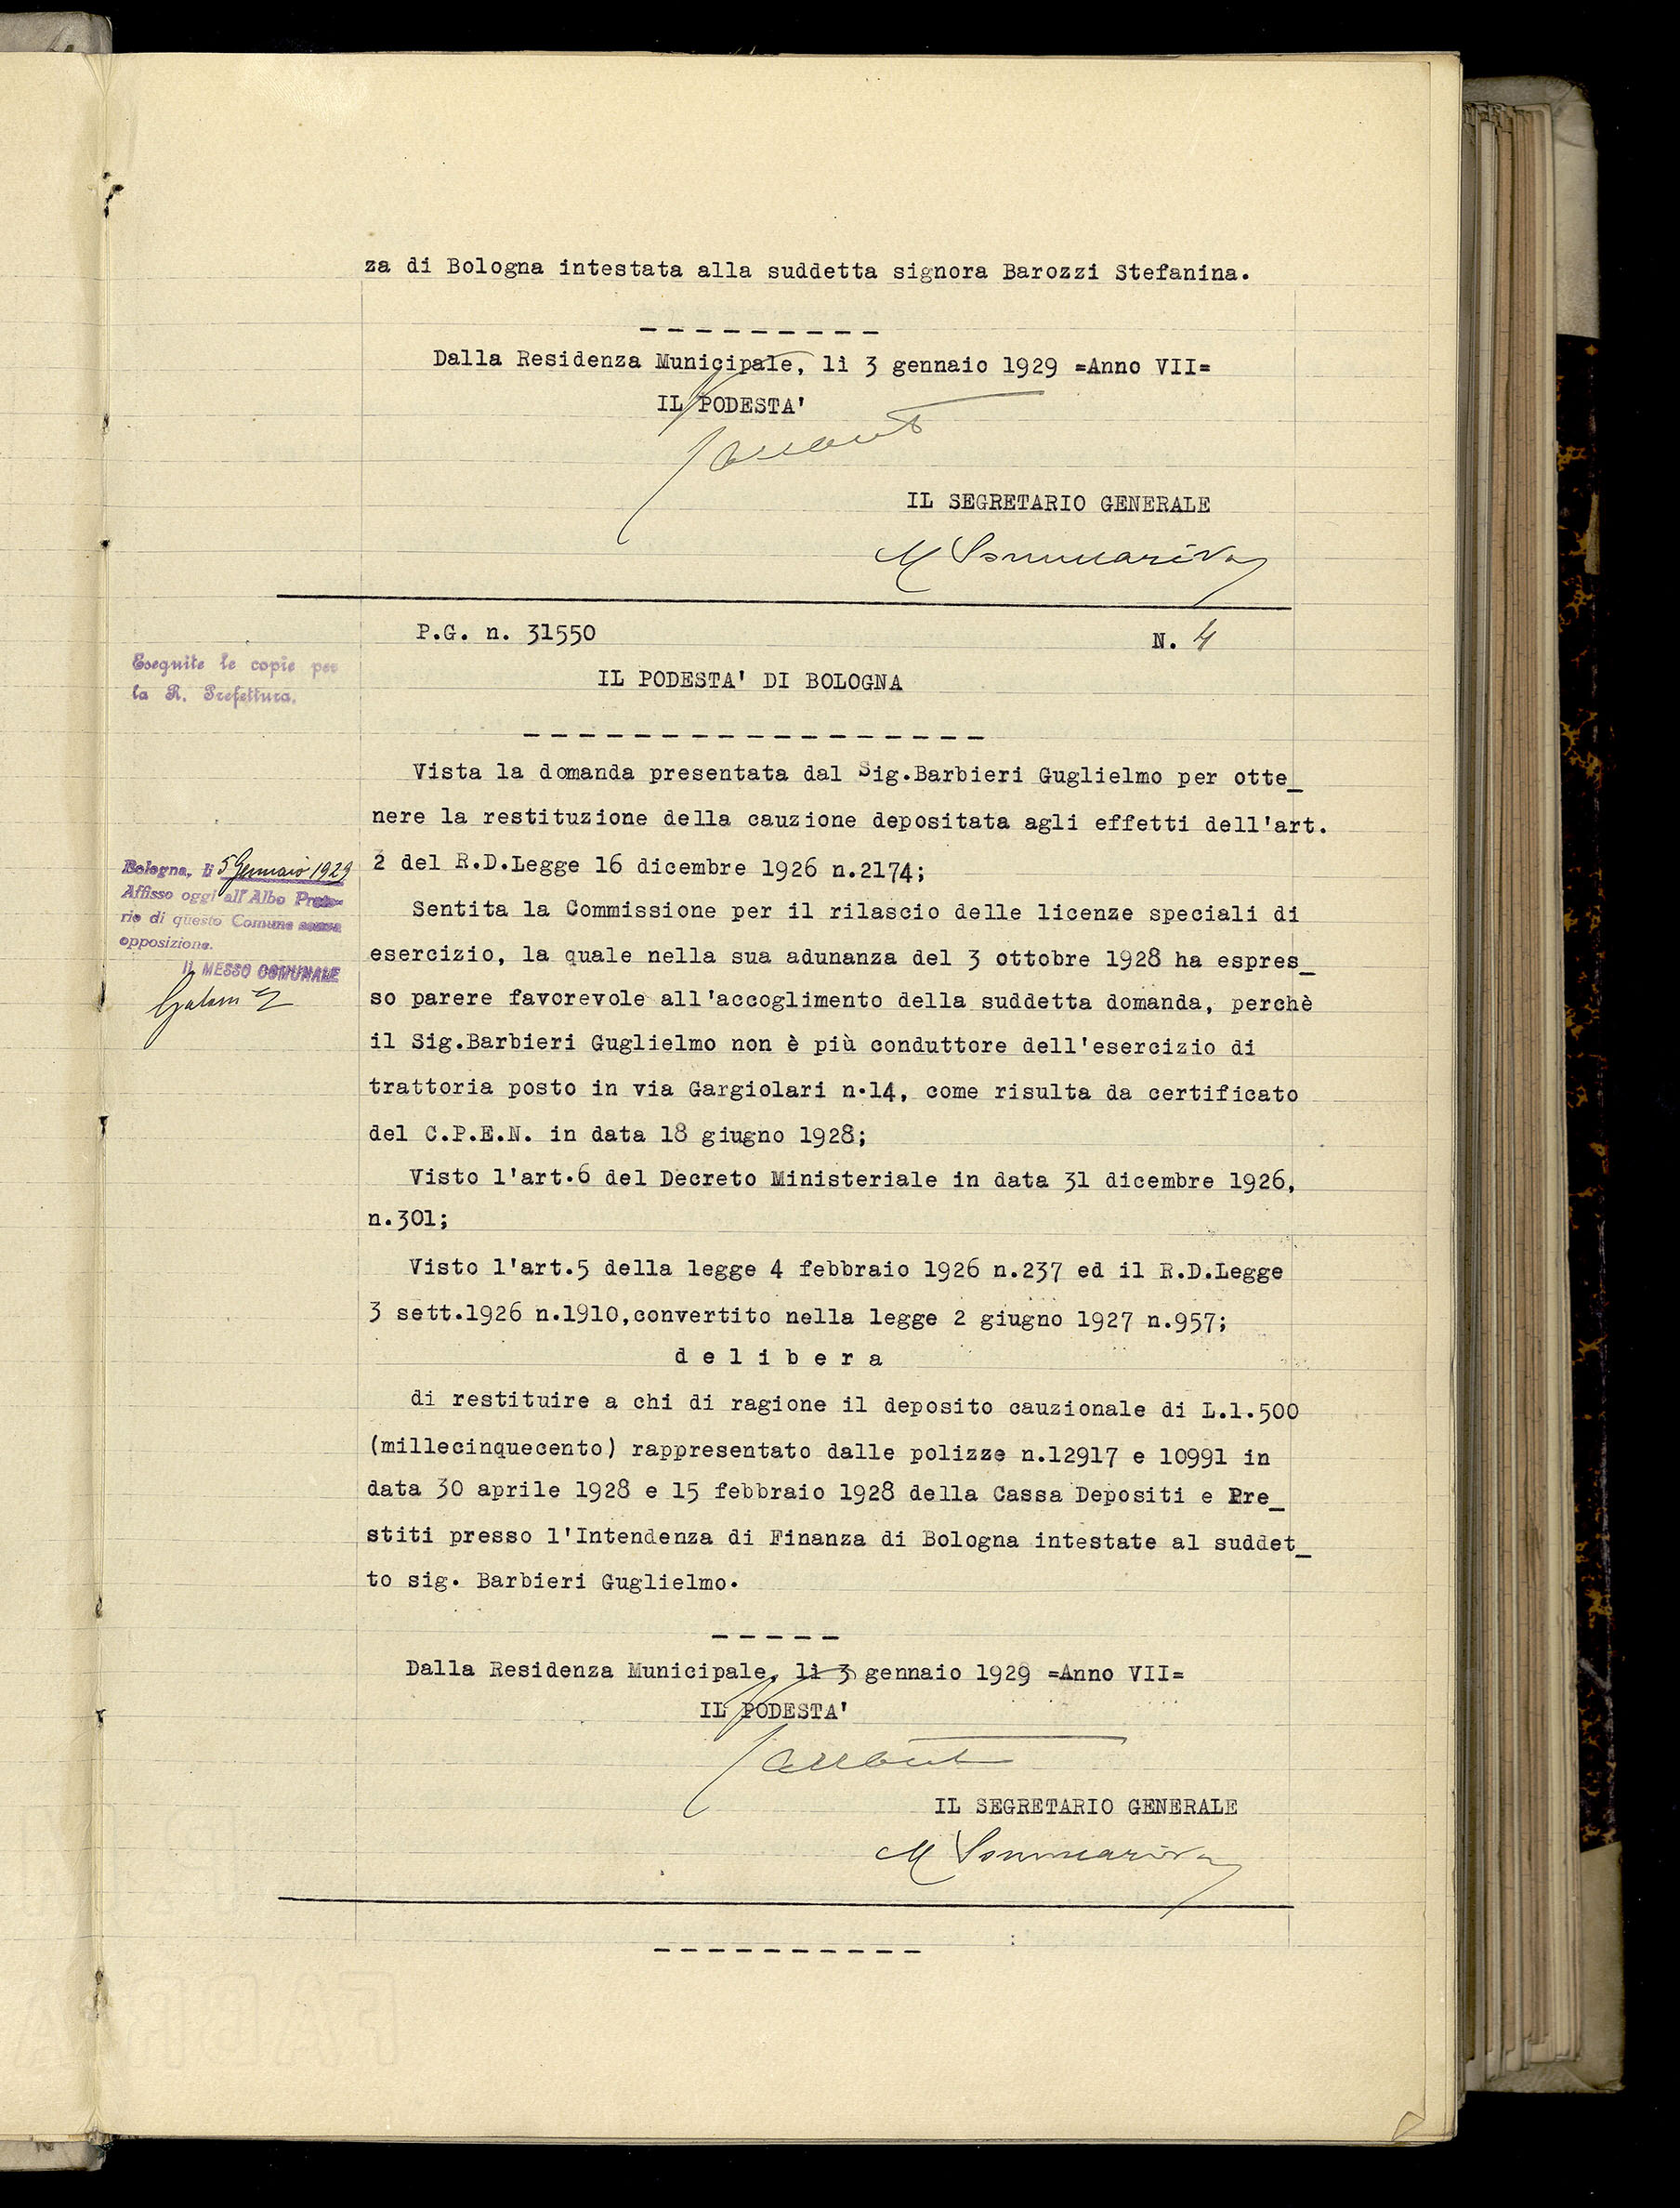 za di Bologna intestata alla suddetta signora Barozzi Stefanina.
Dalla Residenza Municipale, li 3 gennaio 1929 =Anno VII=
IL PODESTA'
IL SEGRETARIO GENERALE
M Sommariva
P.G. n. 31550 N. 4
Eseguite le copie per
la R. Prefettura.
IL PODESTA' DI BOLOGNA
Vista la domanda presentata dal Sig.Barbieri Guglielmo per otte_
nere la restituzione della cauzione depositata agli effetti dell'art.
2 del R.D.Legge 16 dicembre 1926 n.2174;
Bologna, li 5 Gennaio 1929
Affisso oggi all'Albo Preto-
rio di questo Comune senza
opposizione.
IL MESSO COMUNALE
Sentita la Commissione per il rilascio delle licenze speciali di
esercizio, la quale nella sua adunanza del 3 ottobre 1928 ha espres_
so parere favorevole all'accoglimento della suddetta domanda, perchè
il Sig.Barbieri Guglielmo non è più conduttore dell'esercizio di
trattoria posto in via Gargiolari n.14, come risulta da certificato
del C.P.E.N. in data 18 giugno 1928;
Visto l'art.6 del Decreto Ministeriale in data 31 dicembre 1926,
n.301;
Visto l'art.5 della legge 4 febbraio 1926 n.237 ed il R.D.Legge
3 sett.1926 n.1910,convertito nella legge 2 giugno 1927 n.957;
d e l i b e r a
di restituire a chi di ragione il deposito cauzionale di L.1.500
(millecinquecento) rappresentato dalle polizze n.12917 e 10991 in
data 30 aprile 1928 e 15 febbraio 1928 della Cassa Depositi e Pre_
stiti presso l'Intendenza di Finanza di Bologna intestate al suddet_
to sig. Barbieri Guglielmo.
Dalla Residenza Municipale, li 3 gennaio 1929 =Anno VII=
IL PODESTA'
IL SEGRETARIO GENERALE
M Sommariva